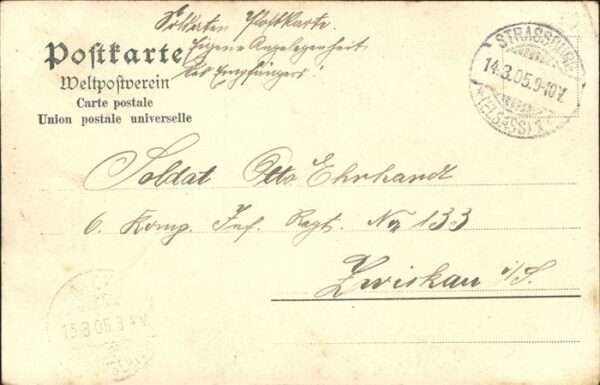 Soldaten Postkarte.
Eigene Angelegenheit
des Empfängers!
Postkarte
Weltpostverein
Carte postale
Union postale universelle
STRASSBURG
14.3.05.9-10V.
*(ELSASS) 1*
Soldat Otto Ehrhardt
6. Komp. Inf. Regt. No 133
Zwickau i/S.
15.3.05.3